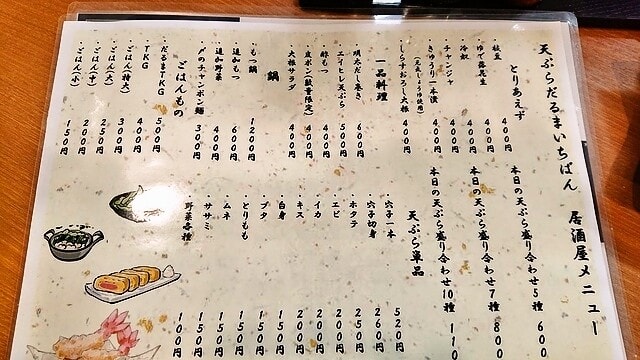 天ぷらだるまいちばん 居酒屋メニュー
とりあえず
・枝豆 400円
・ゆで落花生 400円
・冷奴 400円
・チャンジャ 400円
・きゅうり一本漬 400円
しょうゆ使用)
・しらすおろし大根 400円
一品料理
・明太だし巻き 600円
・エイヒレ天ぷら 500円
・酢もつ 400円
・皮ポン(数量限定) 400円
・大根サラダ 400円
鍋
・もつ鍋 1200円
・追加もつ 600円
・追加野菜 400円
・〆のチャンポン麺 300円
ごはんもの
・だるまTKG 500円
・TKG 400円
・ごはん(特大) 300円
・ごはん(大) 250円
・ごはん(中) 200円
・ごはん(小) 150円
本日の天ぷら盛り合わせ5種 60
本日の天ぷら盛り合わせ7種 800
本日の天ぷら盛り合わせ10種 11
天ぷら単品
・穴子一本 520円
・穴子切身 260円
・ホタテ 250円
・エビ 200円
・イカ 200円
・キス 200円
・白身 150円
・ブタ 150円
・とりもも 150円
・ムネ 150円
・ササミ 150円
・野菜各種 100円